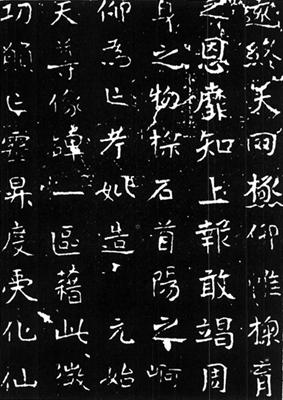 終天罔極仰惟撫育
之恩靡知上報敢竭周
身之物採石首陽之
仰為亡考妣造元始
天尊像碑一區藉此微
功願亡靈昇度更化仙